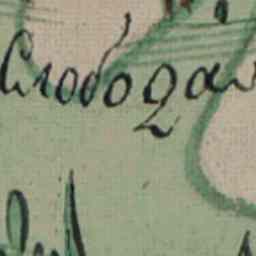 Слобода